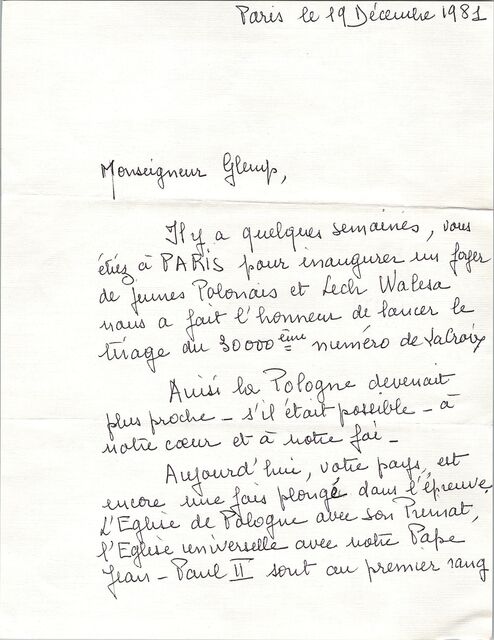 Paris le 19 Décembre 1981
Monseigneur Glemp,
Il y a quelques semaines, vous
étiez à PARIS pour inaugurer un foyer
de jeunes Polonais et Lech Walesa
nous a fait l'honneur de lancer le
tirage du 30000ème numéro de LaCroix
Ainsi la Pologne devenait
plus proche - s'il était possible - à
notre cœur et à notre foi -
Aujourd'hui, votre pays, est
encore une fois plongé dans l'épreuve.
L'Eglise de Pologne avec son Primat,
l'Eglise universelle avec notre Pape
Jean-Paul II sont au premier rang